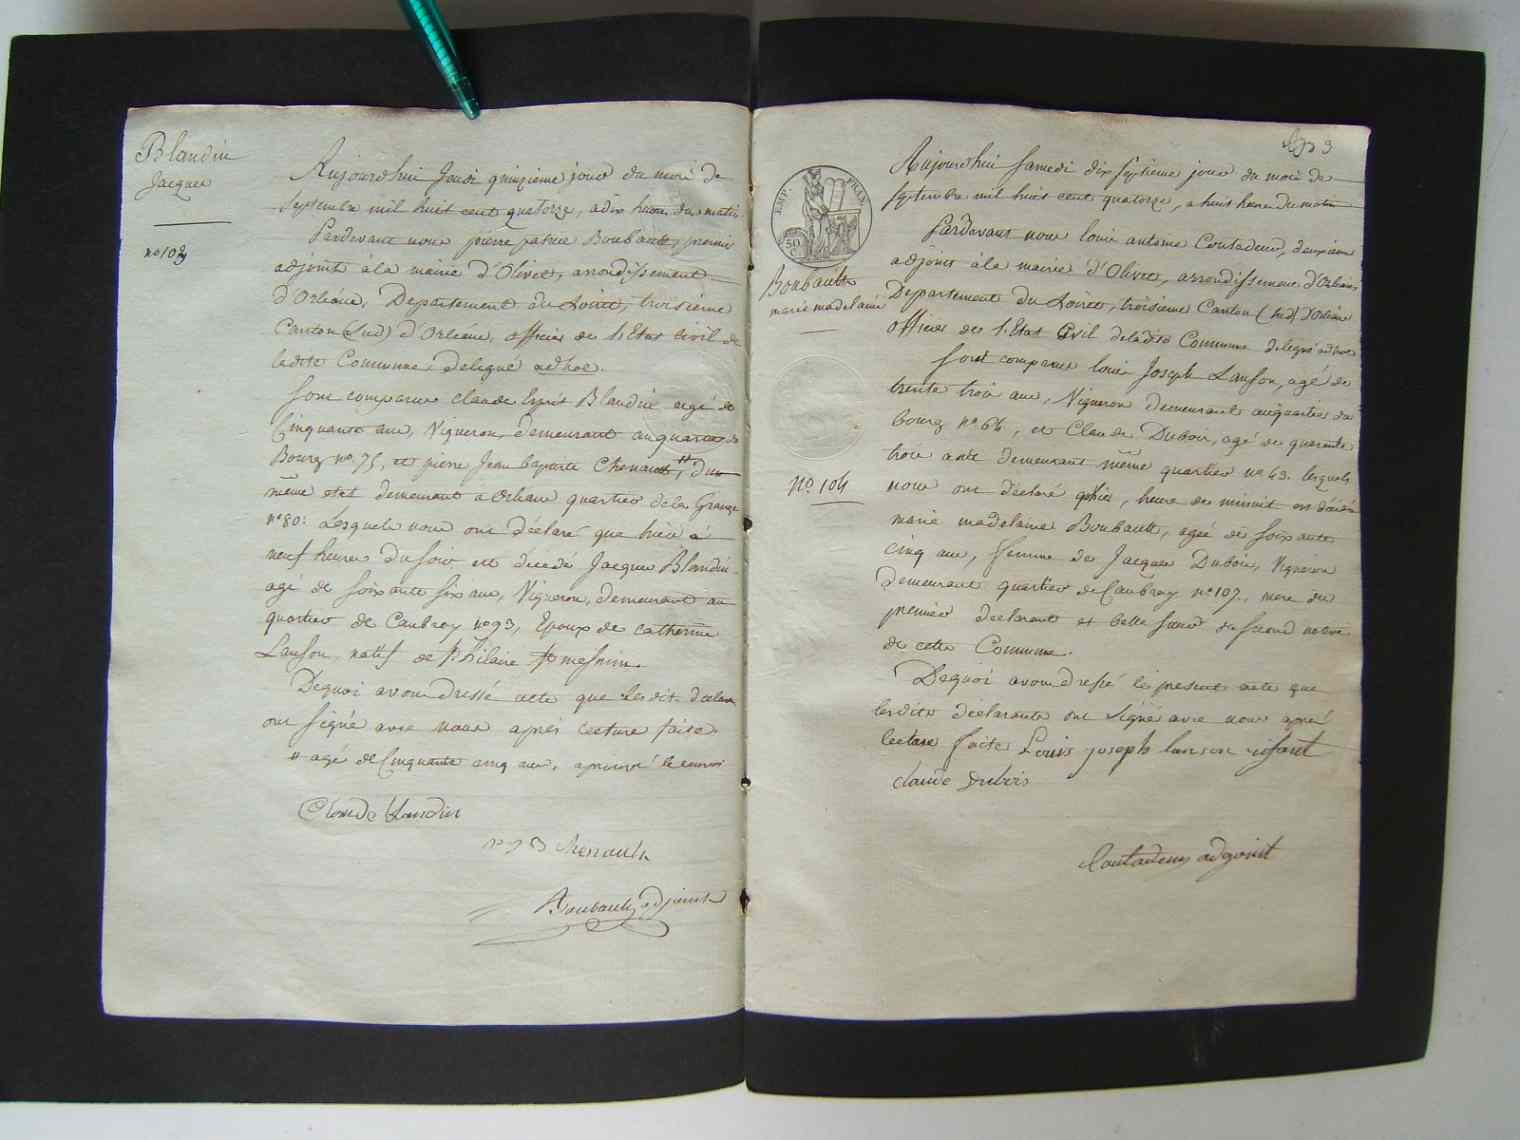 Blandin
Jacques
no 103
Aujourd'hui Jeudi quinzieme jour du mois de
Septembre mil huit cent quatorze, a dix heures du matin
Pardevant nous pierre patrice Boubault, premier
adjoint à la mairie d'Olivet, arrondissement
d'Orléans, Departement du Loiret, troisieme
Canton (Sud) d'Orléans, officier de l'Etat Civil de
ladite Commune, délégué adhoc.
Sont comparus claude Blandin agé de
Cinquante ans, Vigneron, demeurant au quartier du
Bourg no. 75, et pierre Jean baptiste Chenault, " du
même etat demeurant a Orléans quartier de la Grange
no 80: Lesquels nous ont déclaré que hier à
neuf heures du soir est décédé Jacques Blandin
agé de soixante six ans, Vigneron, demeurant au
quartier de Caubray no 93, Epoux de catherine
Lanson, natif de St. hilaire St mesmin.
Dequoi avons dressé acte que lesdit. declarans
ont signé avec nous après lecture faite.
" agé de Cinquante cinq ans, aprouvé le renvoi
Claude blandin
P J B Chenault
Boubault adjoint
EMP. FRAN.
50 C
Boubault
marie madelaine
No. 104
Aujourd'hui Samedi dix Septieme jour du mois de
Septembre mil huit cent quatorze, a huit heures du matin
Pardevant nous louis antoine Coutadeur, deuxieme
adjoint à la mairie d'Olivet, arrondissement d'Orléans
Departement du Loiret, troisieme Canton (sud) d'Orléans
officier de l'Etat Civil de ladite Commune delegué adhoc
Sont comparus louis Joseph Lanson, agé de
trente trois ans, Vigneron demeurant au quartier du
bourg no. 64, et Claude Dubois, agé de quarante
trois ans demeurant même quartier no 43. lesquels
nous ont déclaré qu'hier, heure de minuit est décédé
marie madelaine Boubault, agée de soixante
cinq ans, femme de Jacques Dubois, Vigneron
demeurant quartier de Caubray no. 107., mere du
premier declarant et belle soeur du second native
de cette Commune.
Dequoi avons dressé le present acte que
lesdits déclarants ont signé avec nous après
lecture faite Louis joseph lanson
claude dubois
Coutadeur adjoint